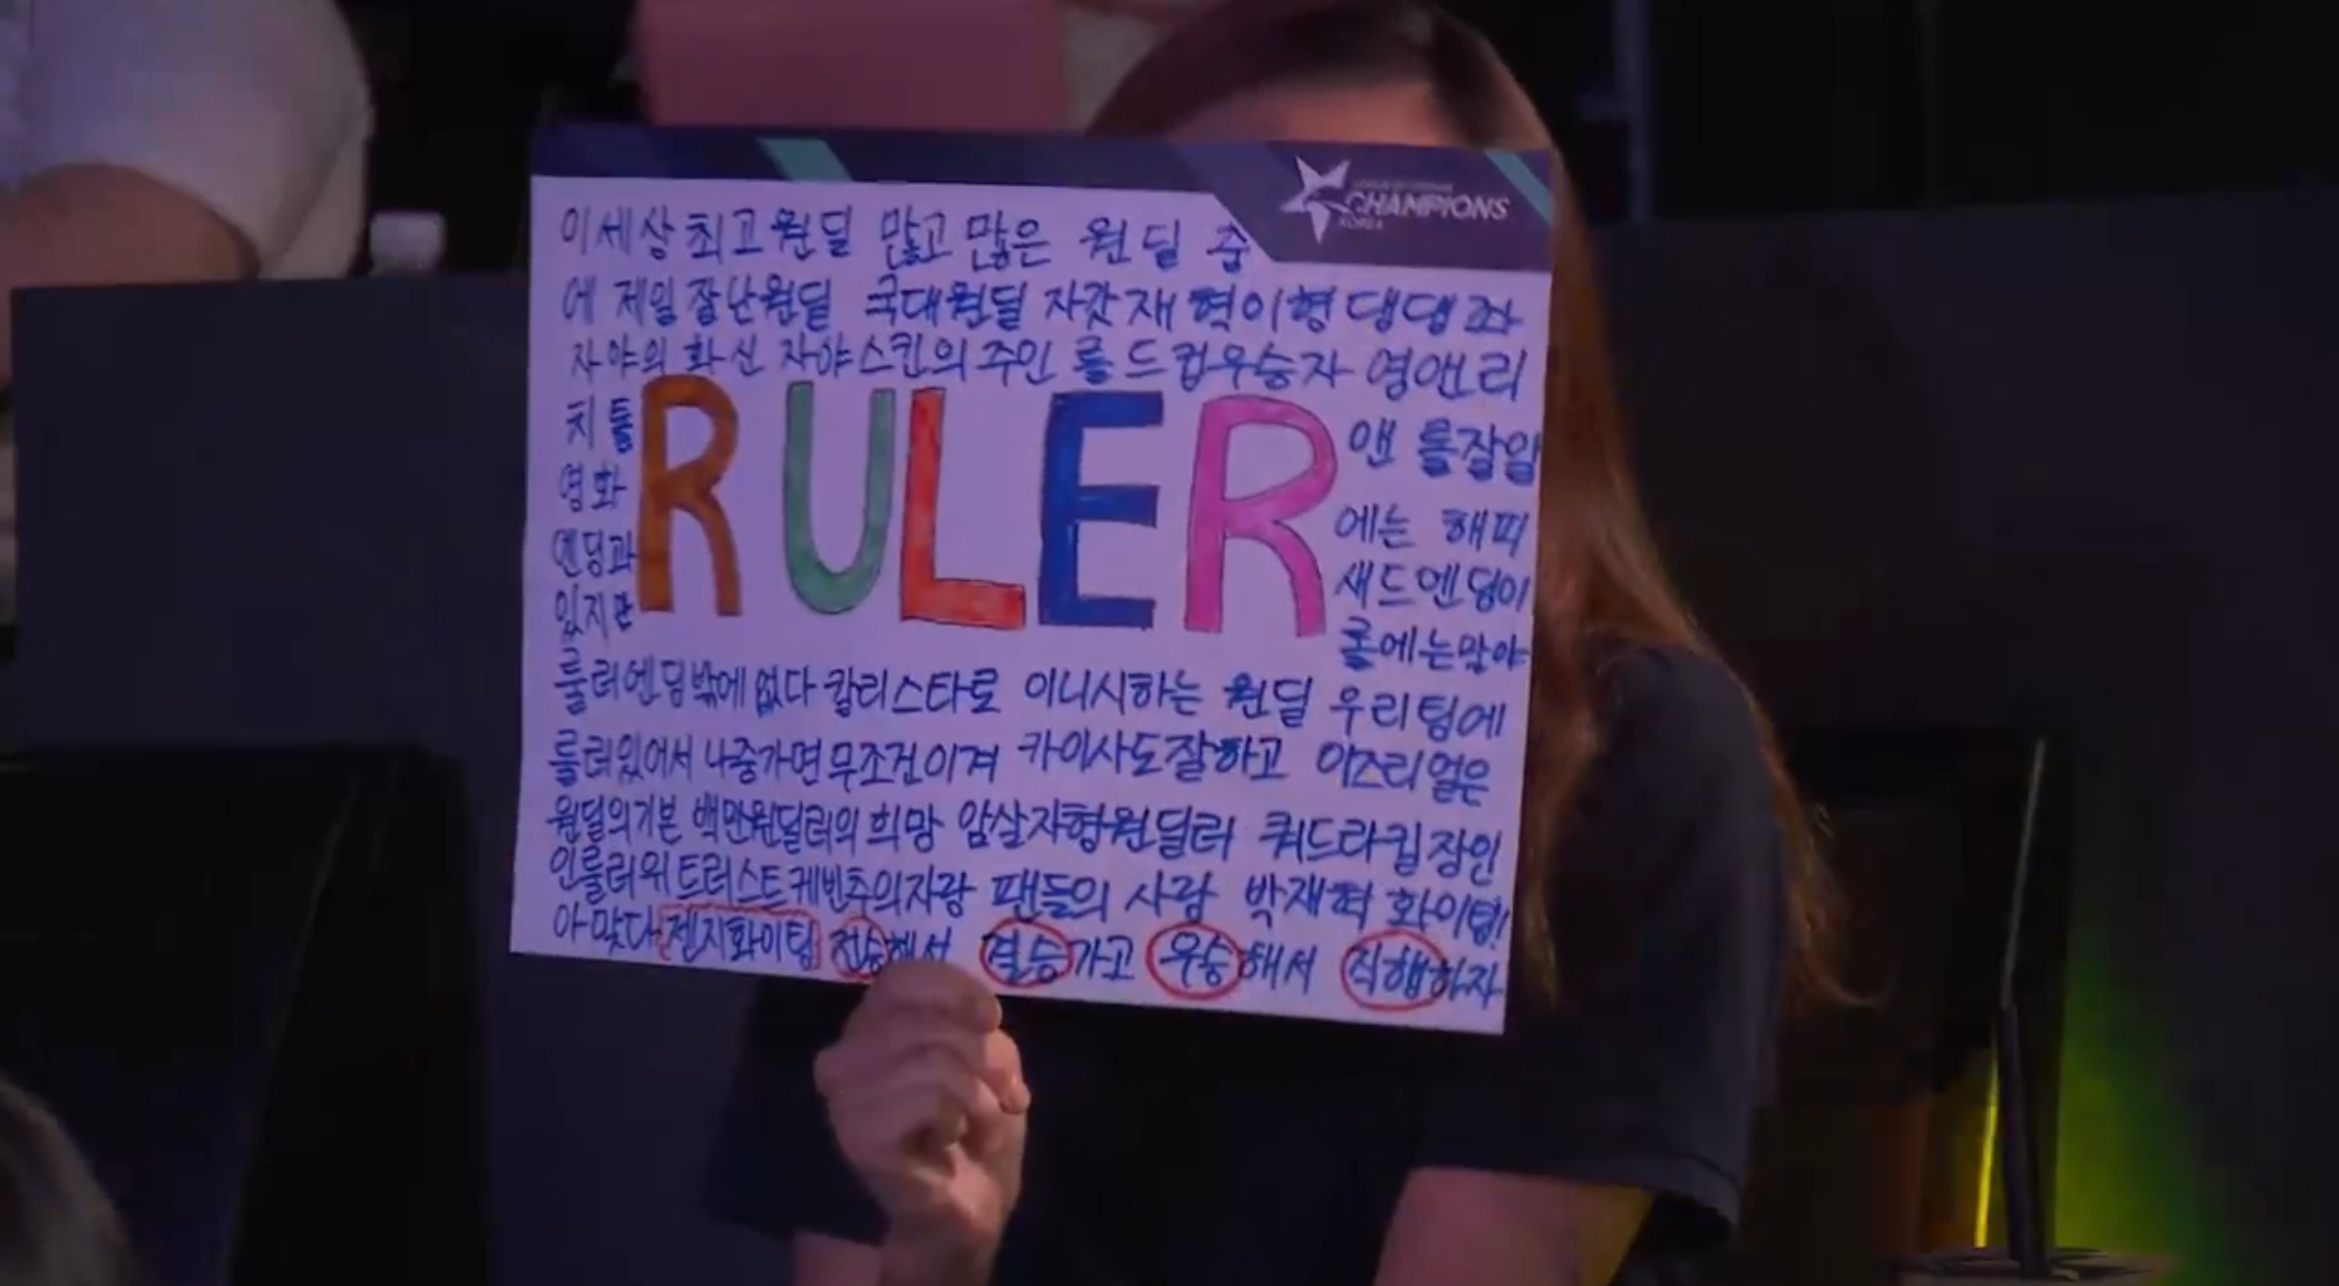 CHAMPIONS
KOREA
이세상최고원딜 많고 많은 원딜 중
에 제일잘난원딜 국대원딜 자갓재혁이형 댕댕좌
자야의 화신 자야스킨의 주인 롤드컵우승자 영앤리
치 툴 앤 롤잘알
RULER
영화 에는 해피
엔딩과 새드엔딩이
있지만 롤에는말야
룰러엔딩밖에없다 칼리스타로 이니시하는 원딜 우리팀에
룰러있어서 나중가면무조건이겨 카이사도잘하고 이즈리얼은
원딜의기본 백만원딜러의 희망 암살자형원딜러 쿼드라킬장인
인룰러위트러스트케빈추의자랑 팬들의 사랑 박재혁 화이팅!
아맞다 젠지화이팅 전승해서 결승가고 우승해서 직행하자